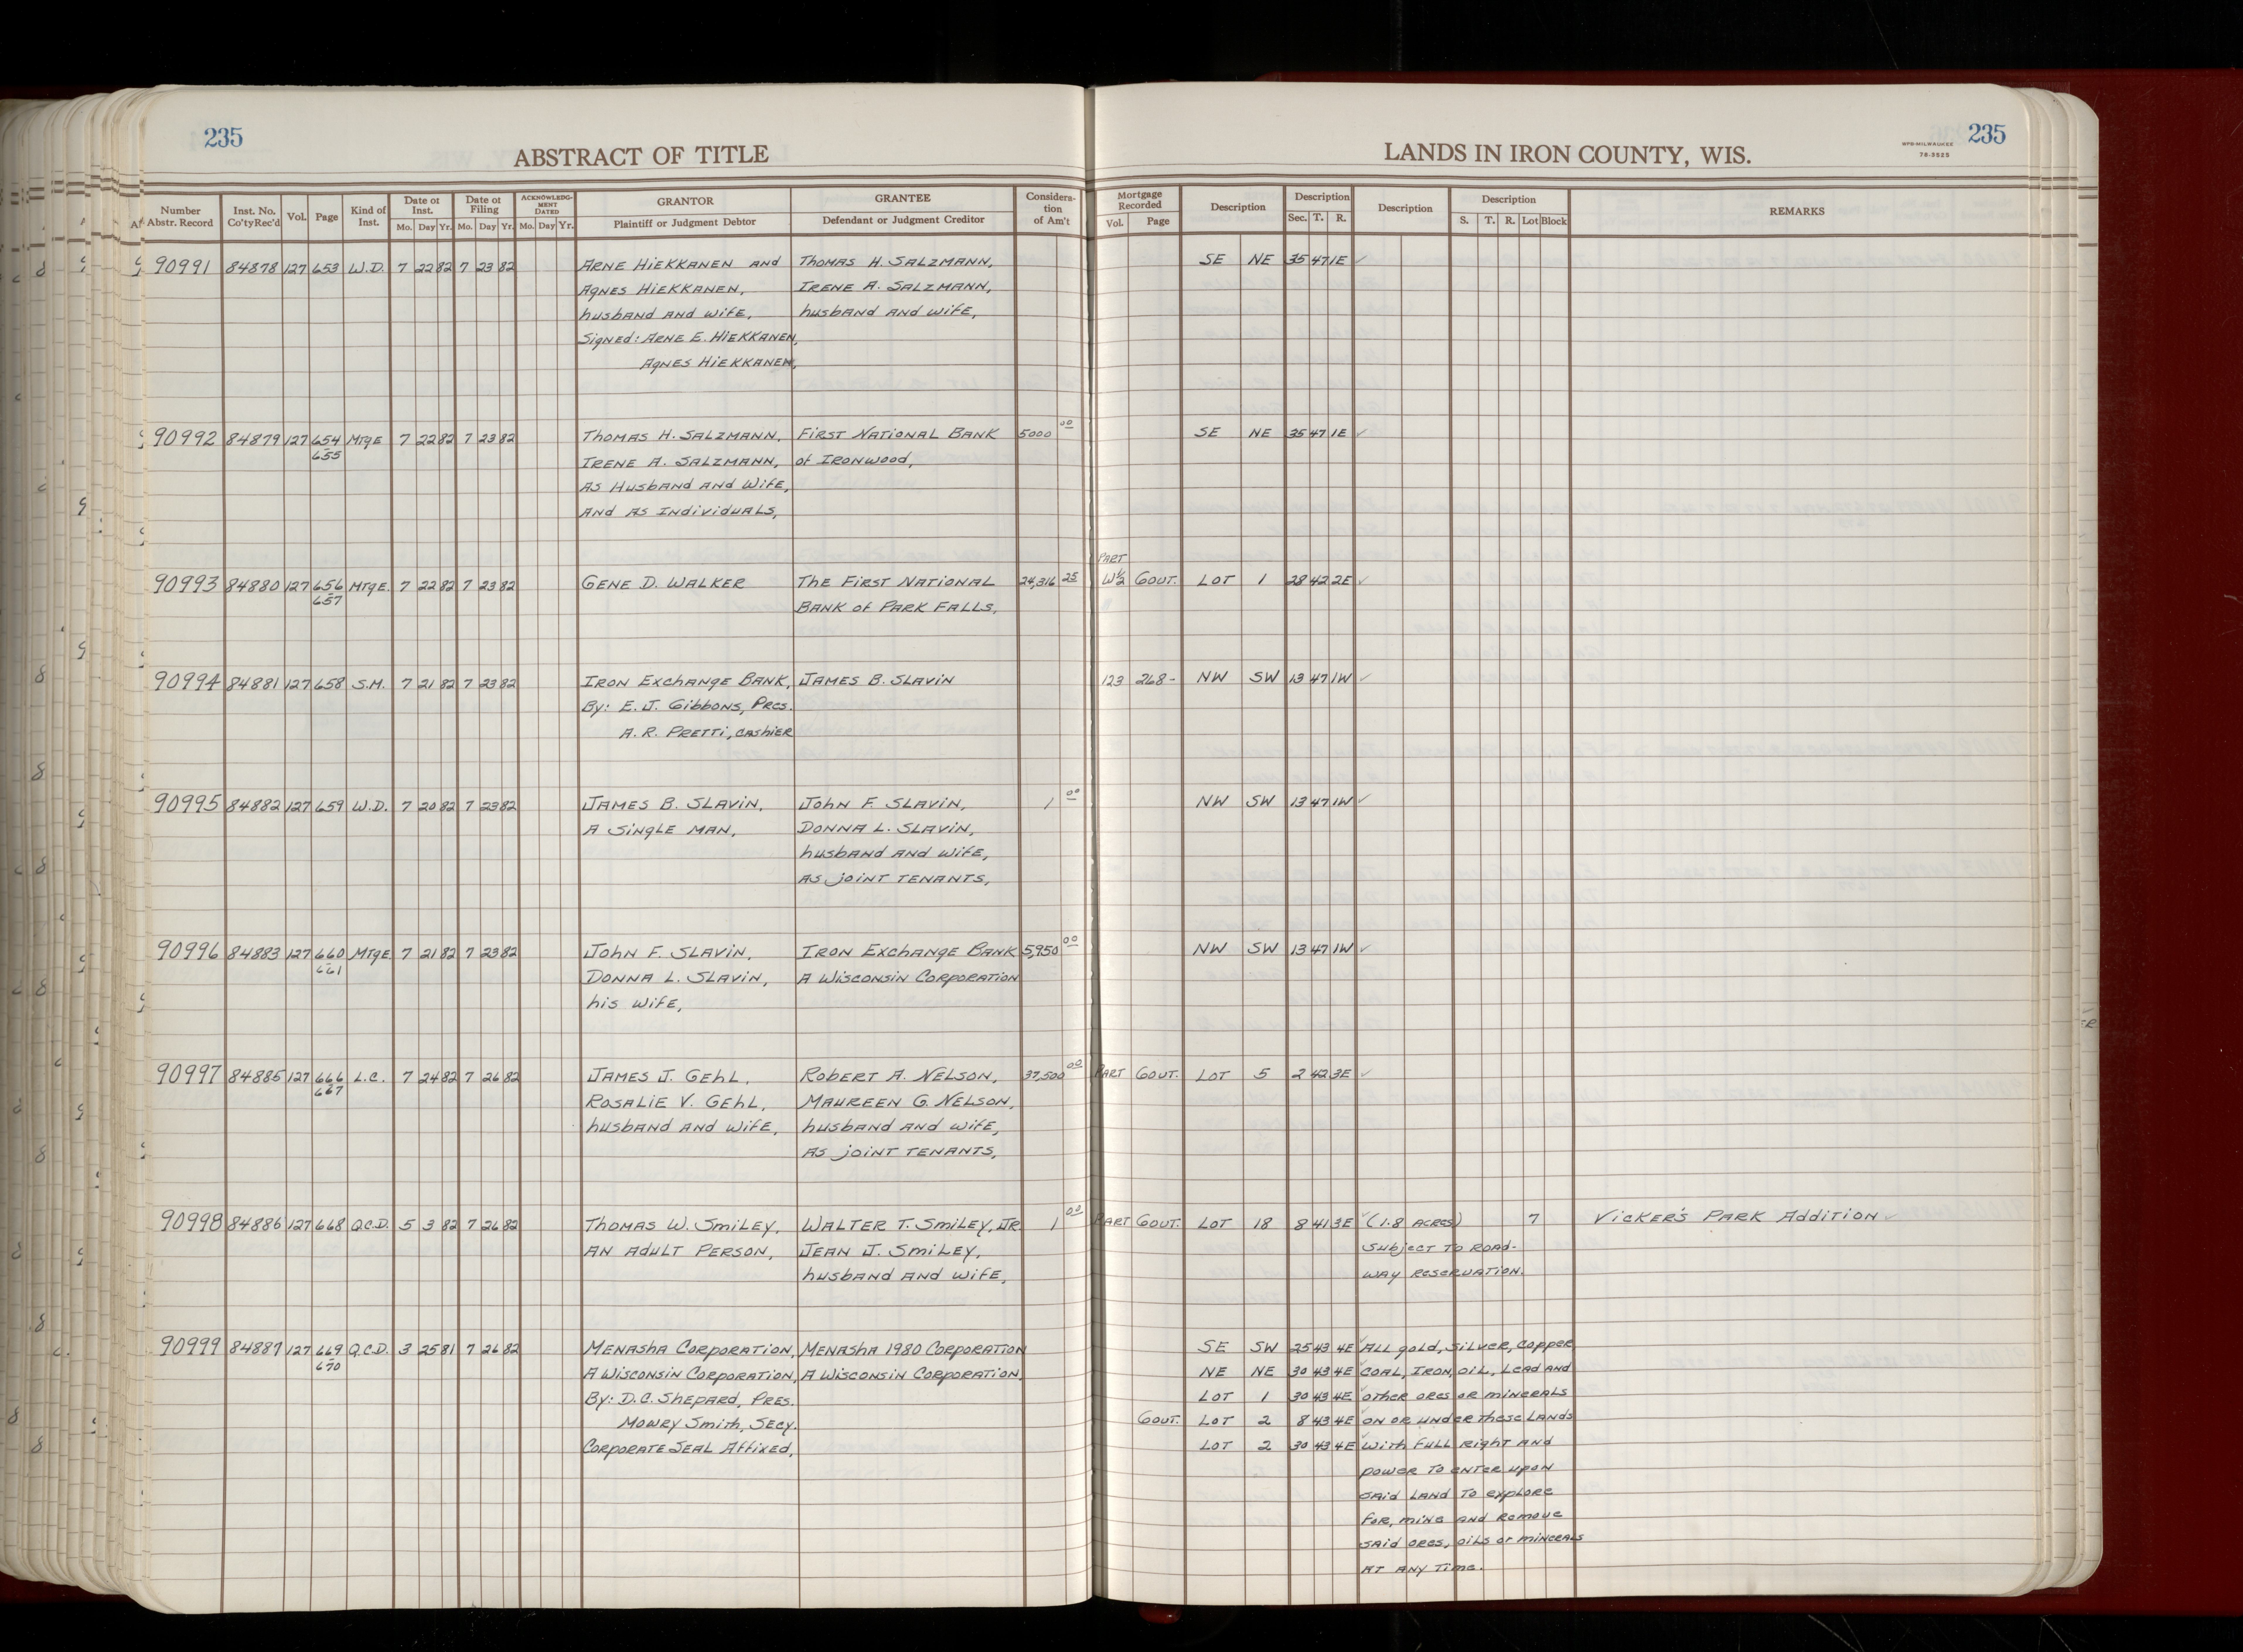 235
ABSTRACT OF TITLE
LANDS IN IRON COUNTY, WIS.
WPB-MILWAUKEE
78-3525
235
Number Abstr. Record Inst. No. Co'ty Rec'd Vol. Page Kind of Inst. Date of Inst. Mo. Day Yr. Date of Filing Mo. Day Yr. ACKNOWLEDGMENT DATED Mo. Day Yr. GRANTOR Plaintiff or Judgment Debtor GRANTEE Defendant or Judgment Creditor Consideration of Am't Mortgage Recorded Vol. Page Description Description Sec. T. R. Description Description S. T. R. Lot Block REMARKS
90991 84878 127 653 W.D. 7 22 82 7 23 82 ARNE HIEKKANEN and THOMAS H. SALZMANN, SE NE 35 47 1E ✓
AGNES HIEKKANEN, IRENE A. SALZMANN,
husband and wife, husband and wife,
Signed: ARNE E. HIEKKANEN,
AGNES HIEKKANEN,
90992 84879 127 654 MTGE 7 22 82 7 23 82 THOMAS H. SALZMANN, FIRST NATIONAL BANK 5000 00 SE NE 35 47 1E ✓
655 IRENE A. SALZMANN, of IRONWOOD,
AS Husband AND Wife,
AND AS INDIVIDUALS,
PART
90993 84880 127 656 MTGE. 7 22 82 7 23 82 GENE D. WALKER THE FIRST NATIONAL 24,316 25 W½ GOVT. LOT 1 28 42 2E ✓
657 BANK of PARK FALLS,
90994 84881 127 658 S.M. 7 21 82 7 23 82 IRON EXCHANGE BANK, JAMES B. SLAVIN 123 268- NW SW 13 47 1W ✓
By: E.J. Gibbons, Pres.
A.R. PRETTI, CASHIER
90995 84882 127 659 W.D. 7 20 82 7 23 82 JAMES B. SLAVIN, JOHN F. SLAVIN, 1 00 NW SW 13 47 1W ✓
A SINGLE MAN, DONNA L. SLAVIN,
husband AND wife,
AS JOINT TENANTS,
90996 84883 127 660 MTGE 7 21 82 7 23 82 JOHN F. SLAVIN, IRON EXCHANGE BANK 5,950 00 NW SW 13 47 1W ✓
661 DONNA L. SLAVIN, A WISCONSIN CORPORATION
his wife,
90997 84885 127 666 L.C. 7 24 82 7 26 82 JAMES J. GEHL, ROBERT A. NELSON, 37,500 00 PART GOVT. LOT 5 2 42 3E ✓
667 ROSALIE V. GEHL, MAUREEN G. NELSON,
husband AND wife, husband AND wife,
AS JOINT TENANTS,
90998 84886 127 668 Q.C.D. 5 3 82 7 26 82 THOMAS W. SMILEY, WALTER T. SMILEY, JR 1 00 PART GOVT. LOT 18 8 41 3E ✓ (1.8 ACRES) 7 VICKER'S PARK ADDITION ✓
AN ADULT PERSON, JEAN J. SMILEY, SUBJECT TO ROAD-
husband AND wife, WAY RESERVATION.
90999 84887 127 669 Q.C.D. 3 25 81 7 26 82 MENASHA CORPORATION, MENASHA 1980 CORPORATION SE SW 25 43 4E ✓ ALL gold, silver, copper
670 A WISCONSIN CORPORATION, A WISCONSIN CORPORATION, NE NE 30 43 4E ✓ COAL, IRON, OIL, LEAD AND
By: D.C. SHEPARD, PRES. LOT 1 30 43 4E ✓ other ores or minerals
MOWRY SMITH, SECY. GOVT. LOT 2 8 43 4E ✓ ON OR UNDER these LANDS
CORPORATE SEAL AFFIXED, LOT 2 30 43 4E ✓ with full right AND
power to enter upon
said LAND to explore
for, mine and remove
said ores, oils or minerals
AT ANY time.